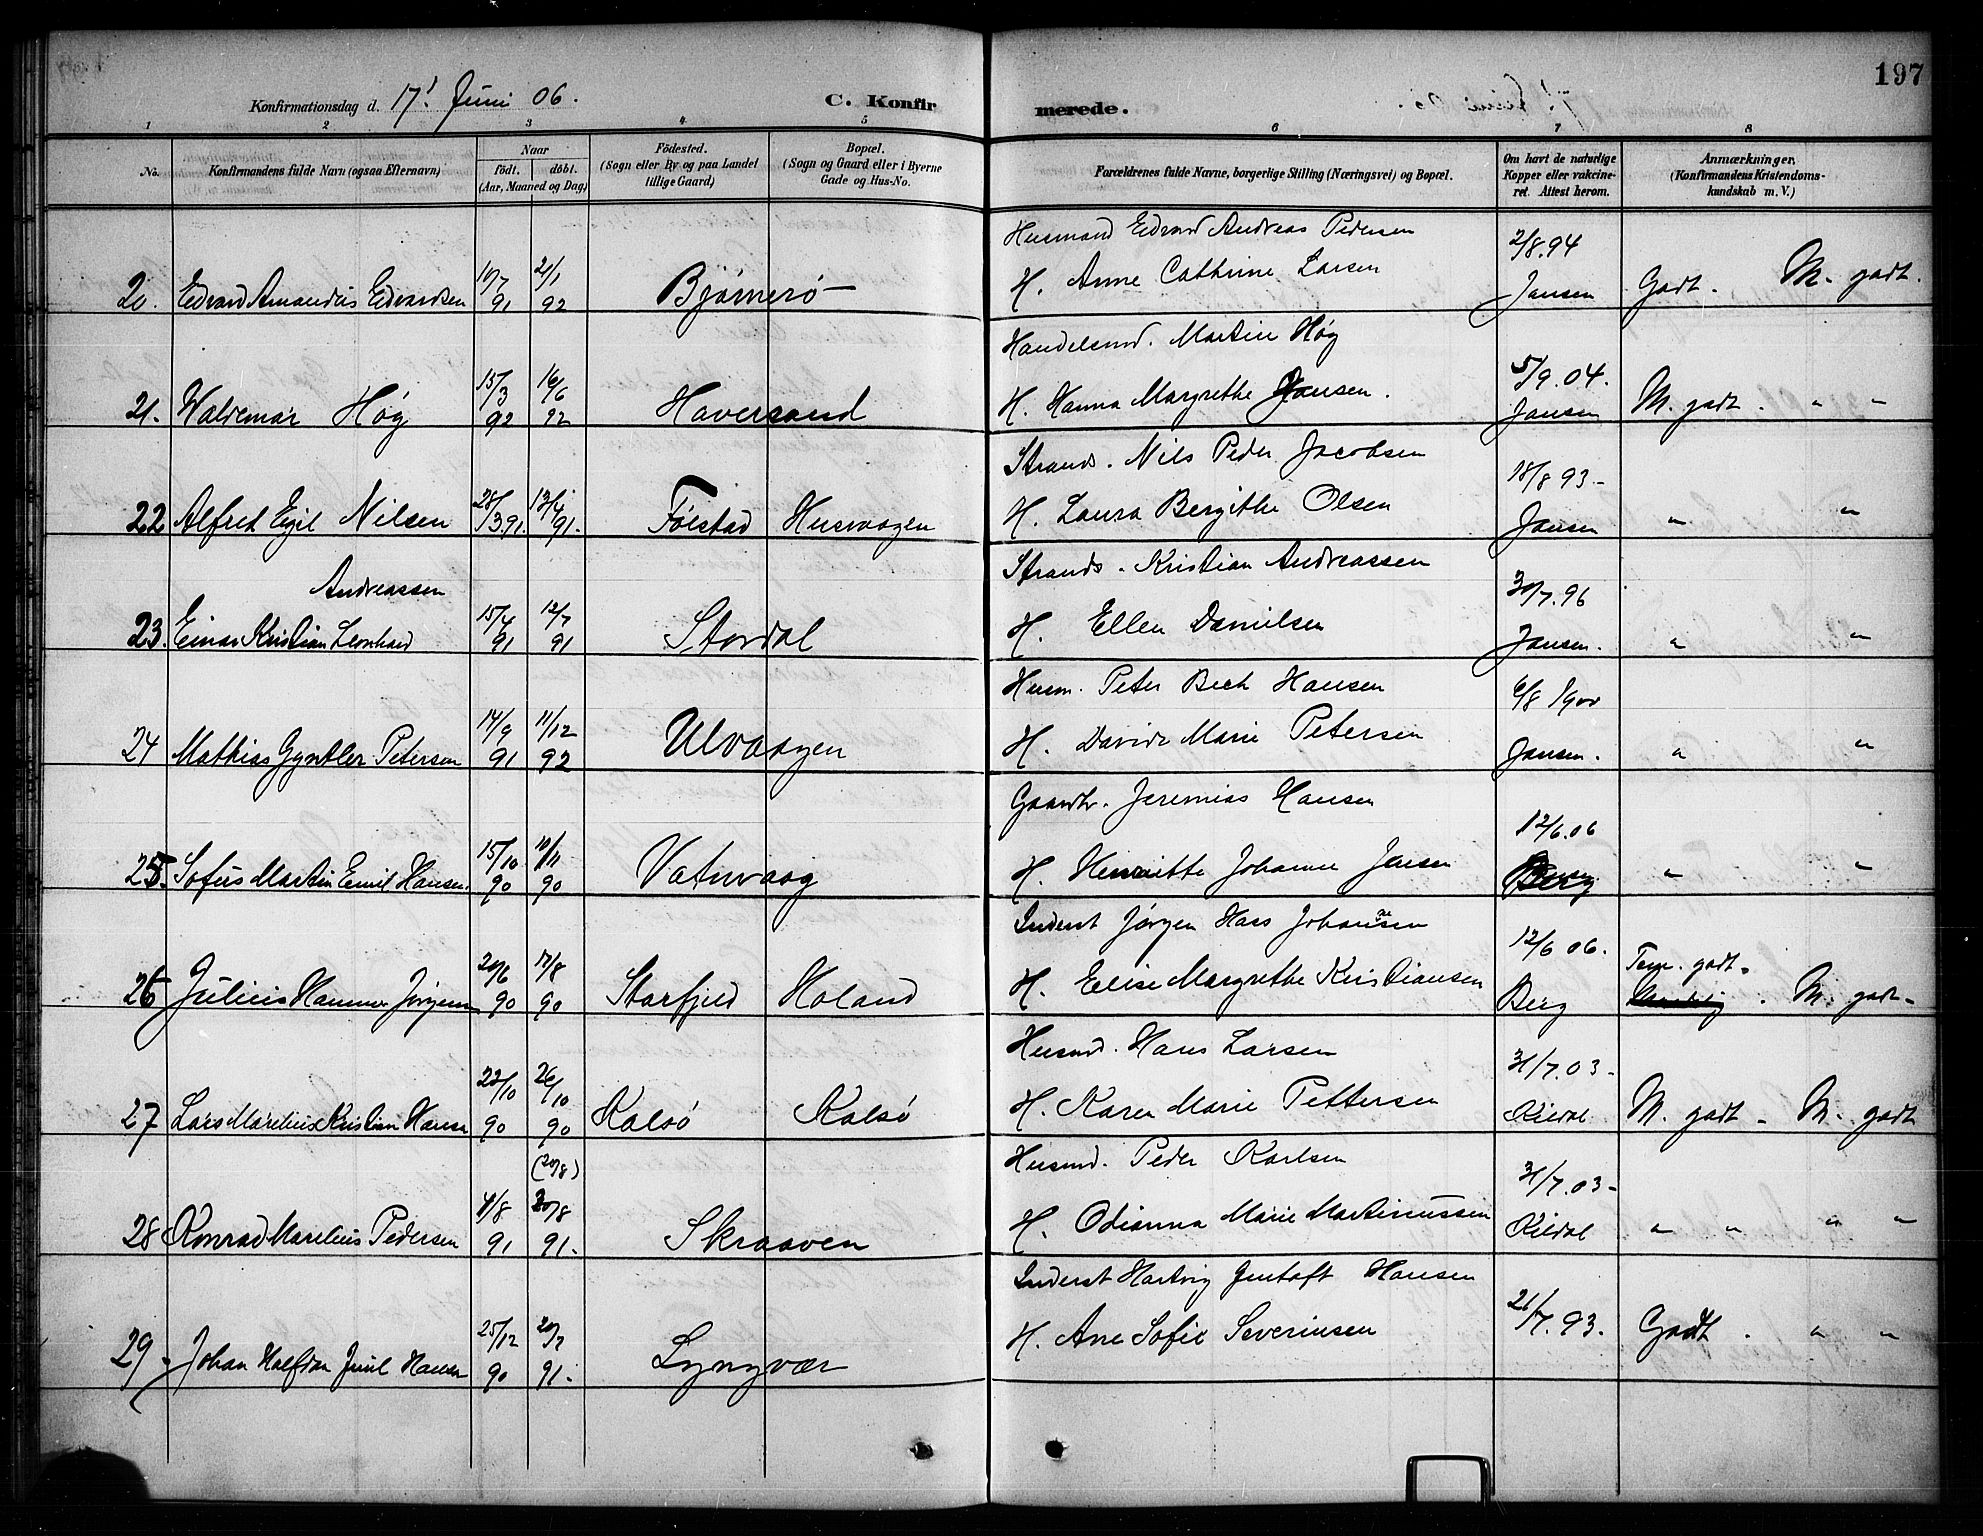 197
Konfirmationsdag d. 17' Juni 06.
C. Konfirmerede.
1 2 3 4 5 6 7 8
No.
Konfirmandens fulde Navn (ogsaa Efternavn)
Naar
födt. döbt.
(Aar, Maaned og Dag)
Födested.
(Sogn eller By og paa Landet
tillige Gaard)
Bopæl.
(Sogn og Gaard eller i Byerne
Gade og Hus-No.
Forældrenes fulde Navne, borgerlige Stilling (Næringsvei) og Bopæl.
Om havt de naturlige
Kopper eller vakcine-
ret. Attest herom.
Anmærkninger,
(Konfirmandens Kristendoms-
kundskab m. V.)
Husmand Edvard Andreas Pedersen 2/8.94
20. Edvard Amandus Edvardsen 10/7 91 21/1 92 Bjørnerö H. Anne Cathrine Larsen Jansen Godt. M. godt.
Handelsmd. Martin Høg 5/9.04.
21. Waldemar Høg 15/3 92 16/6 92 Haversand H. Hanna Margrethe Jansen. Jansen M. godt. " "
Strands. Nils Peder Jacobsen 18/8 93-
22 Alfred Egil Nilsen 28/3.91. 13/4 91. Følstad Husvaagen H. Laura Bergithe Olsen Jansen " "
Andreassen Strands. Kristian Andreassen 30/7.96
23. Einar Kristian Leonhard 15/4 91 12/7 91 Stordal H. Ellen Danielsen Jansen. " "
Husm. Peter Bech Hansen 6/8 1900
24 Mathias Gyntler Petersen 14/9 91 11/12 92 Ulvaagen H. Davida Marie Petersen Jansen. " "
Gaardbr. Jeremias Hansen 12/6.06
25. Sofus Martin Emil Hansen. 15/10 90 10/11 90 Vatnvaag H. Henriette Johanne Jensen Berg " "
Inderst Jörgen Hass Johansen 12/6 06. Tem. godt.
26 Julius Hammer Jörgensen 20/6 90 17/8 90 Storfjeld Holand H. Elise Margrethe Kristiansen Berg . M. godt-
Husmd. Hans Larsen 31/7.03-
27 Lars Marelius Kristian Hansen 22/10 90 26/10 90 Kalsö Kalsö H. Karen Marie Pettersen Kildal M. godt - M. godt
(20/8) Husmd. Peder Karlsen 31/7.03-
28 Konrad Marelius Pedersen 4/8 91 30/8 91. Skraaven H. Odianna Marie Martinussen Kildal " " " "
Inderst Hartvig Hansen 21/7.93.
29. Johan Halfdan Juul Hansen 25/12 90 20/7 91. Lyngvær H. Ane Sofie Severinsen Godt. " "